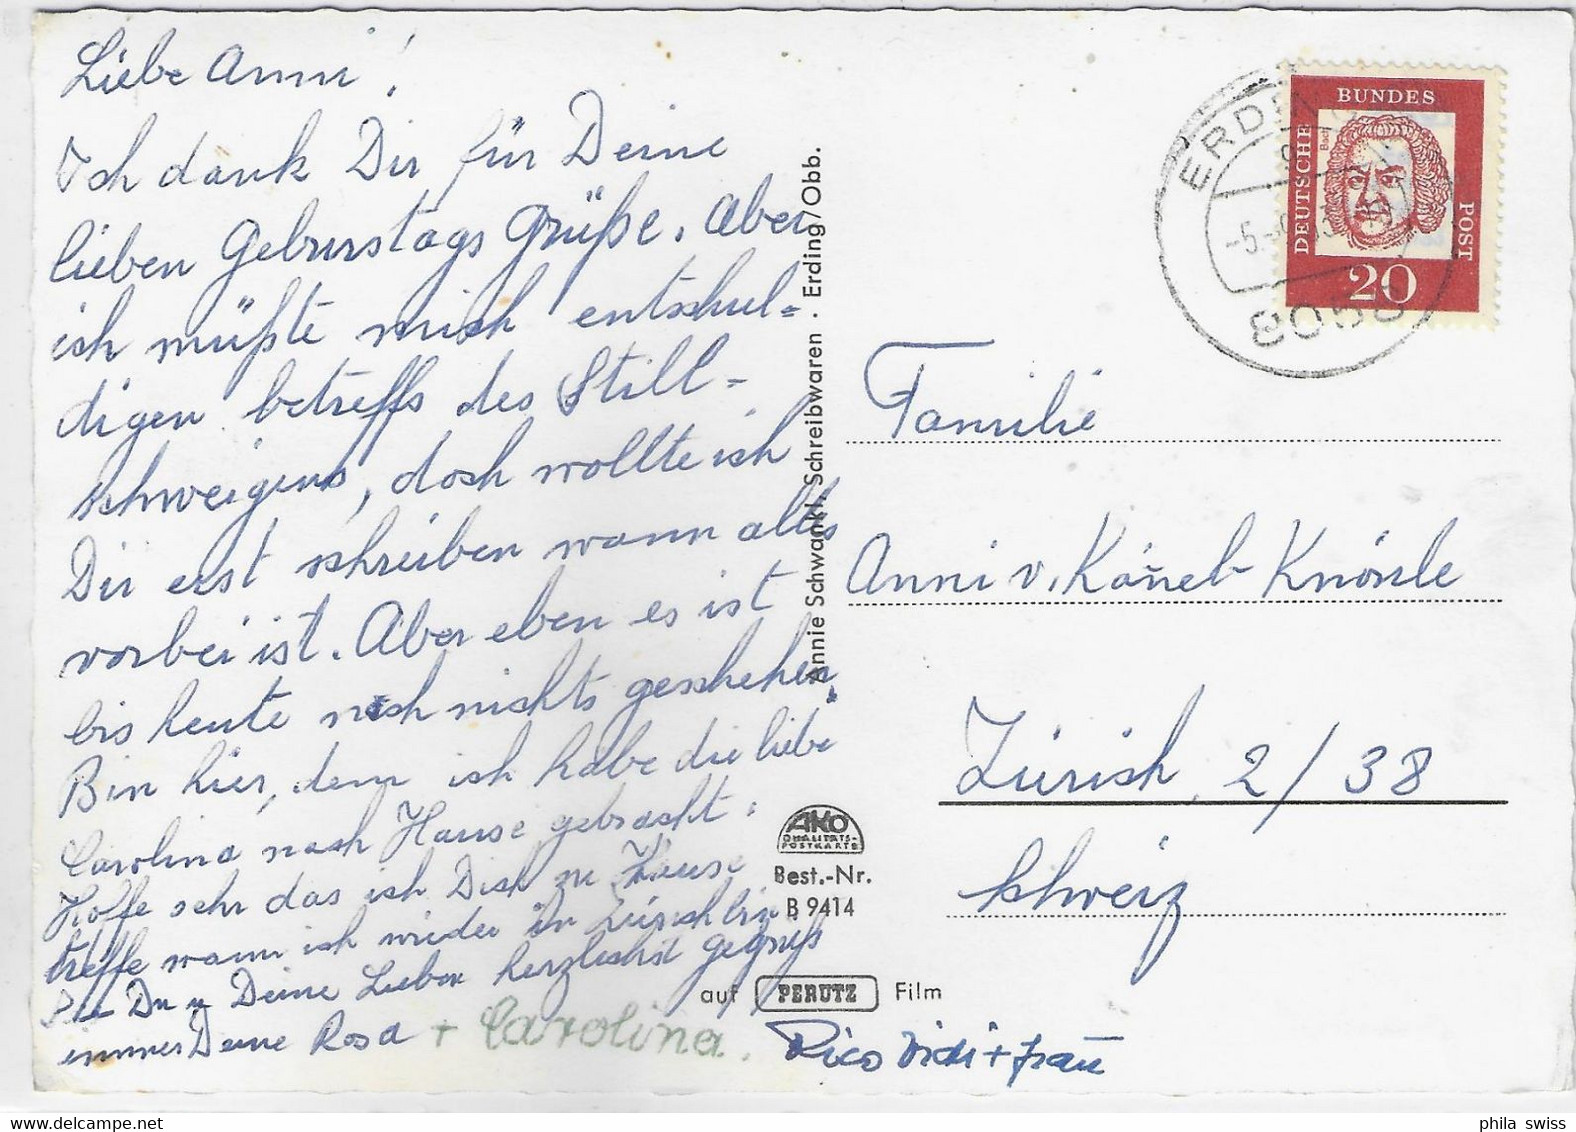 Liebe Anni!
Ich dank Dir für Deine
lieben Geburstags Grüße. Aber
ich müßte mich entschul=
digen betreffs des Still=
schweigens, doch wollte ich
Dir erst schreiben wann alles
vorbei ist. Aber eben es ist
bis heute noch nichts geschehen.
Bin hier, denn ich habe die liebe
Carolina nach Hause gebracht.
Hoffe sehr das ich Dich zu Hause
treffe wann ich wieder in Zürich bin
Du u Deine Lieben herzlichst gegrüßt
immer Deine Rosa + Carolina. Rico + Frau
Annie Schwankl, Schreibwaren . Erding/Obb.
AKO
QUALITÄTS-
POSTKARTE
Best.-Nr.
B 9414
auf PERUTZ Film
DEUTSCHE BUNDES POST
Bach
20
ERDING
8058
Familie
Anni v. Känel-Knörle
Zürich, 2/38
Schweiz
phila swiss